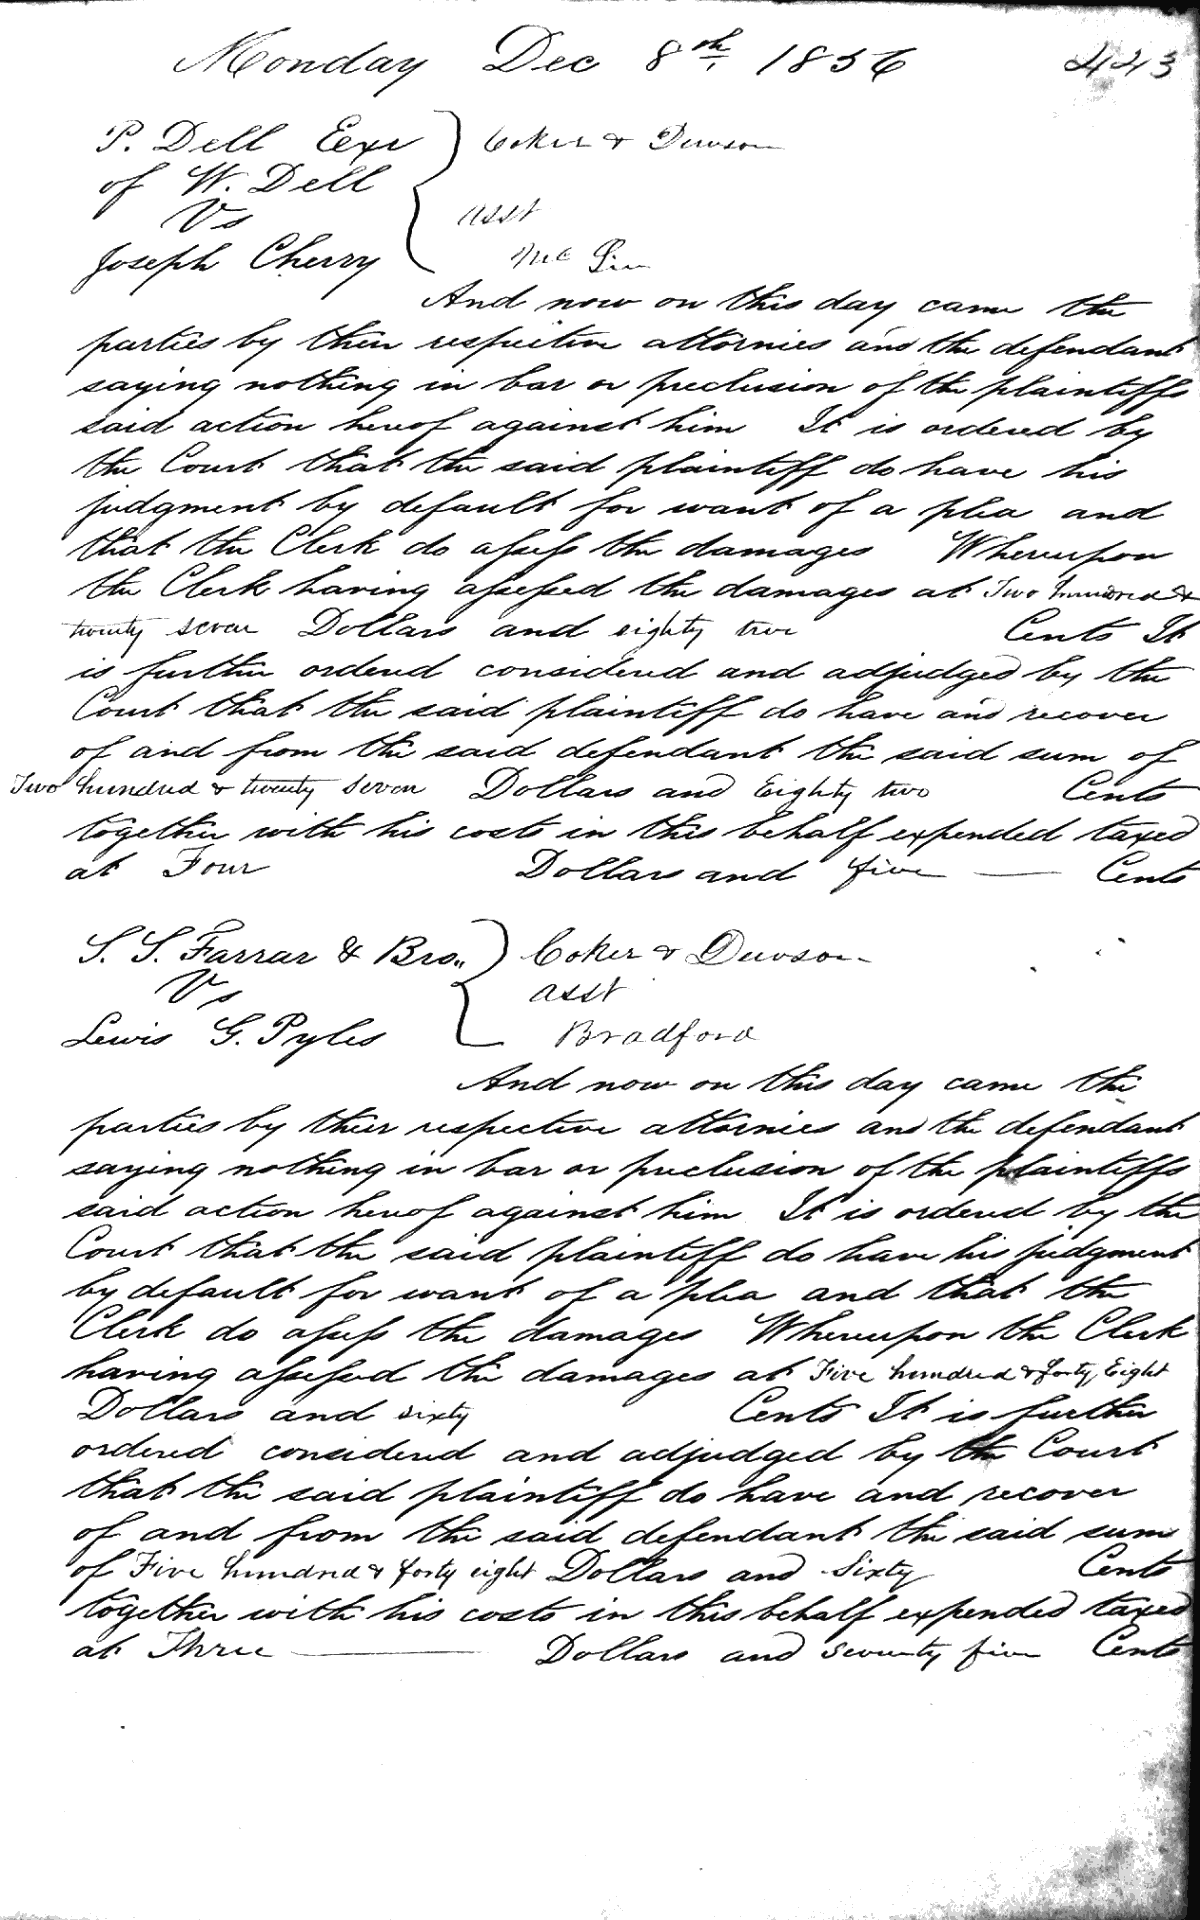 Monday Dec 8th, 1856 443
P. Dell Eexr Coker & Dawson
of W. Dell
Vs asst
Joseph Cherry Mc
And now on this day came the
parties by their respective attornies and the defendant
saying nothing in bar or preclusion of the plaintiffs
said action hereof against him It is ordered by
the Court that the said plaintiff do have his
judgment by default for want of a plea and
that the Clerk do assess the damages Whereupon
the Clerk having assessed the damages at Two hundred &
twenty seven Dollars and eighty two Cents It
is further ordered considered and adjudged by the
Court that the said plaintiff do have and recover
of and from the said defendant the said sum of
Two hundred & twenty seven Dollars and Eighty two Cents
together with his costs in this behalf expended taxed
at Four Dollars and five — Cents
S. S. Farrar & Bro,, Coker & Dawson
Vs asst
Lewis G. Pyles Bradford
And now on this day came the
parties by thier respective attornies and the defendant
saying nothing in bar or preclusion of the plaintiffs
said action hereof against him It is ordered by the
Court that the said plaintiff do have his judgment
by default for want of a plea and that the
Clerk do assess the damages Whereupon the Clerk
having assessed the damages at Five hundred & forty Eight
Dollars and sixty Cents It is further
ordered considered and adjudged by the Court
that the said plaintiff do have and recover
of and from the said defendant the said sum
of Five hundred & forty eight Dollars and Sixty Cents
together with his costs in this behalf expended taxed
at Three — Dollars and seventy five Cents